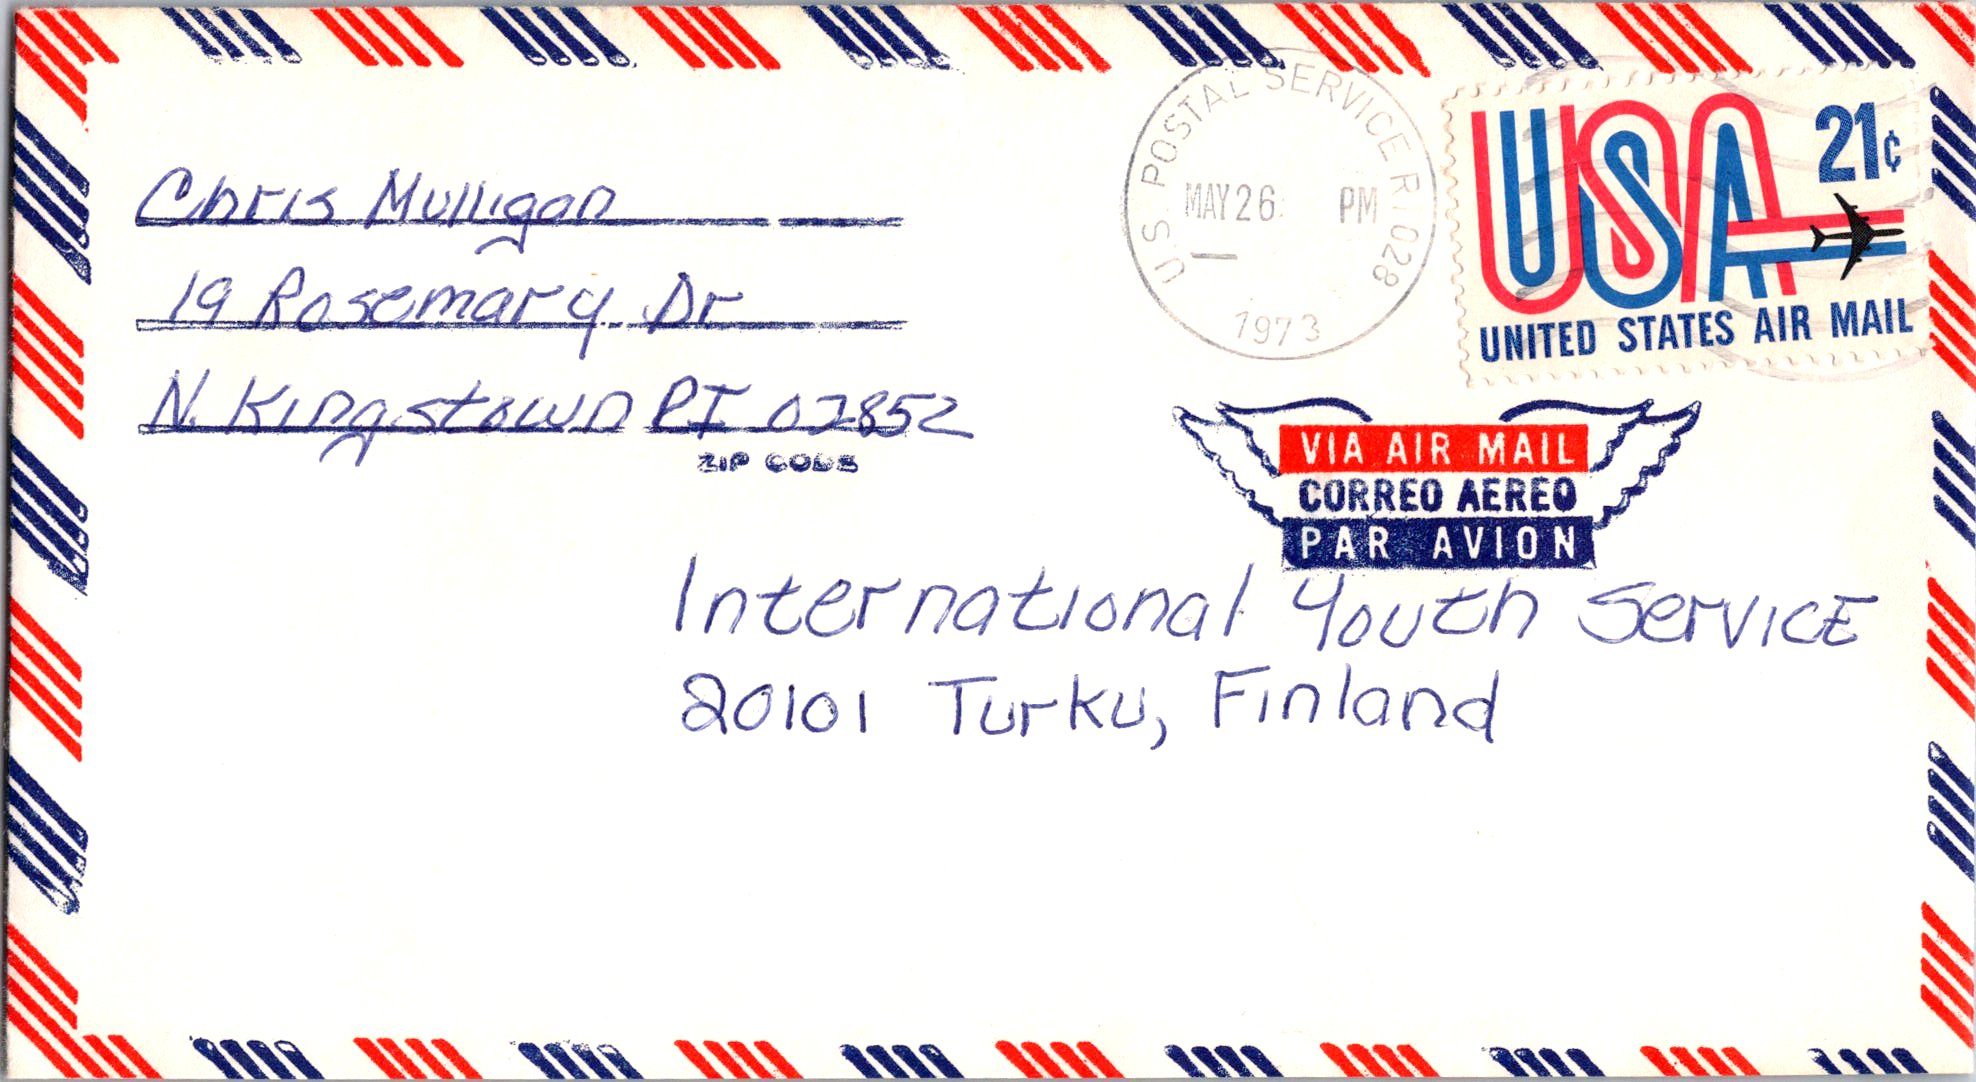 Chris Mulligan
19 Rosemary Dr
N. Kingstown RI 02852
ZIP CODE
U.S. POSTAL SERVICE RI 028
MAY 26 PM
1973
USA 21¢
UNITED STATES AIR MAIL
VIA AIR MAIL
CORREO AEREO
PAR AVION
International Youth Service
20101 Turku, Finland